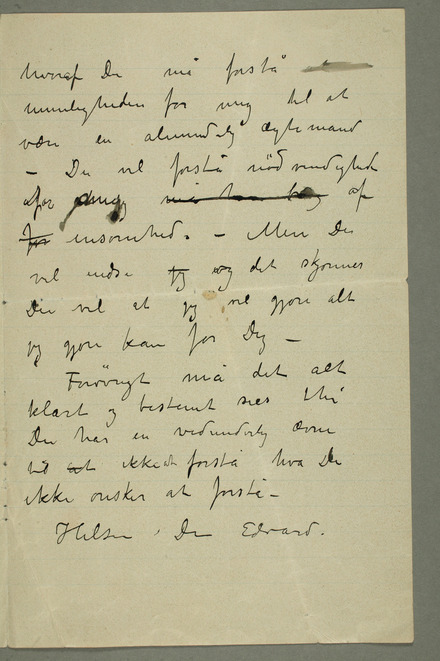 hvoraf Du må forstå
umuligheden for mig til at
være en almindelig ægtemand
– Du vil forstå nødvendigheden
for mig af
for ensomhed. – Men Du
vil indse jeg og det skjønner
Du vel at jeg vil gjøre alt
jeg gjøre kan for Dig –
Forövrigt må det alt
klart og bestemt sies thi
Du har en vidunderlig ævne
til at ikke at forstå hva Du
ikke ønsker at forstå –
Hilsen, Din Edvard.